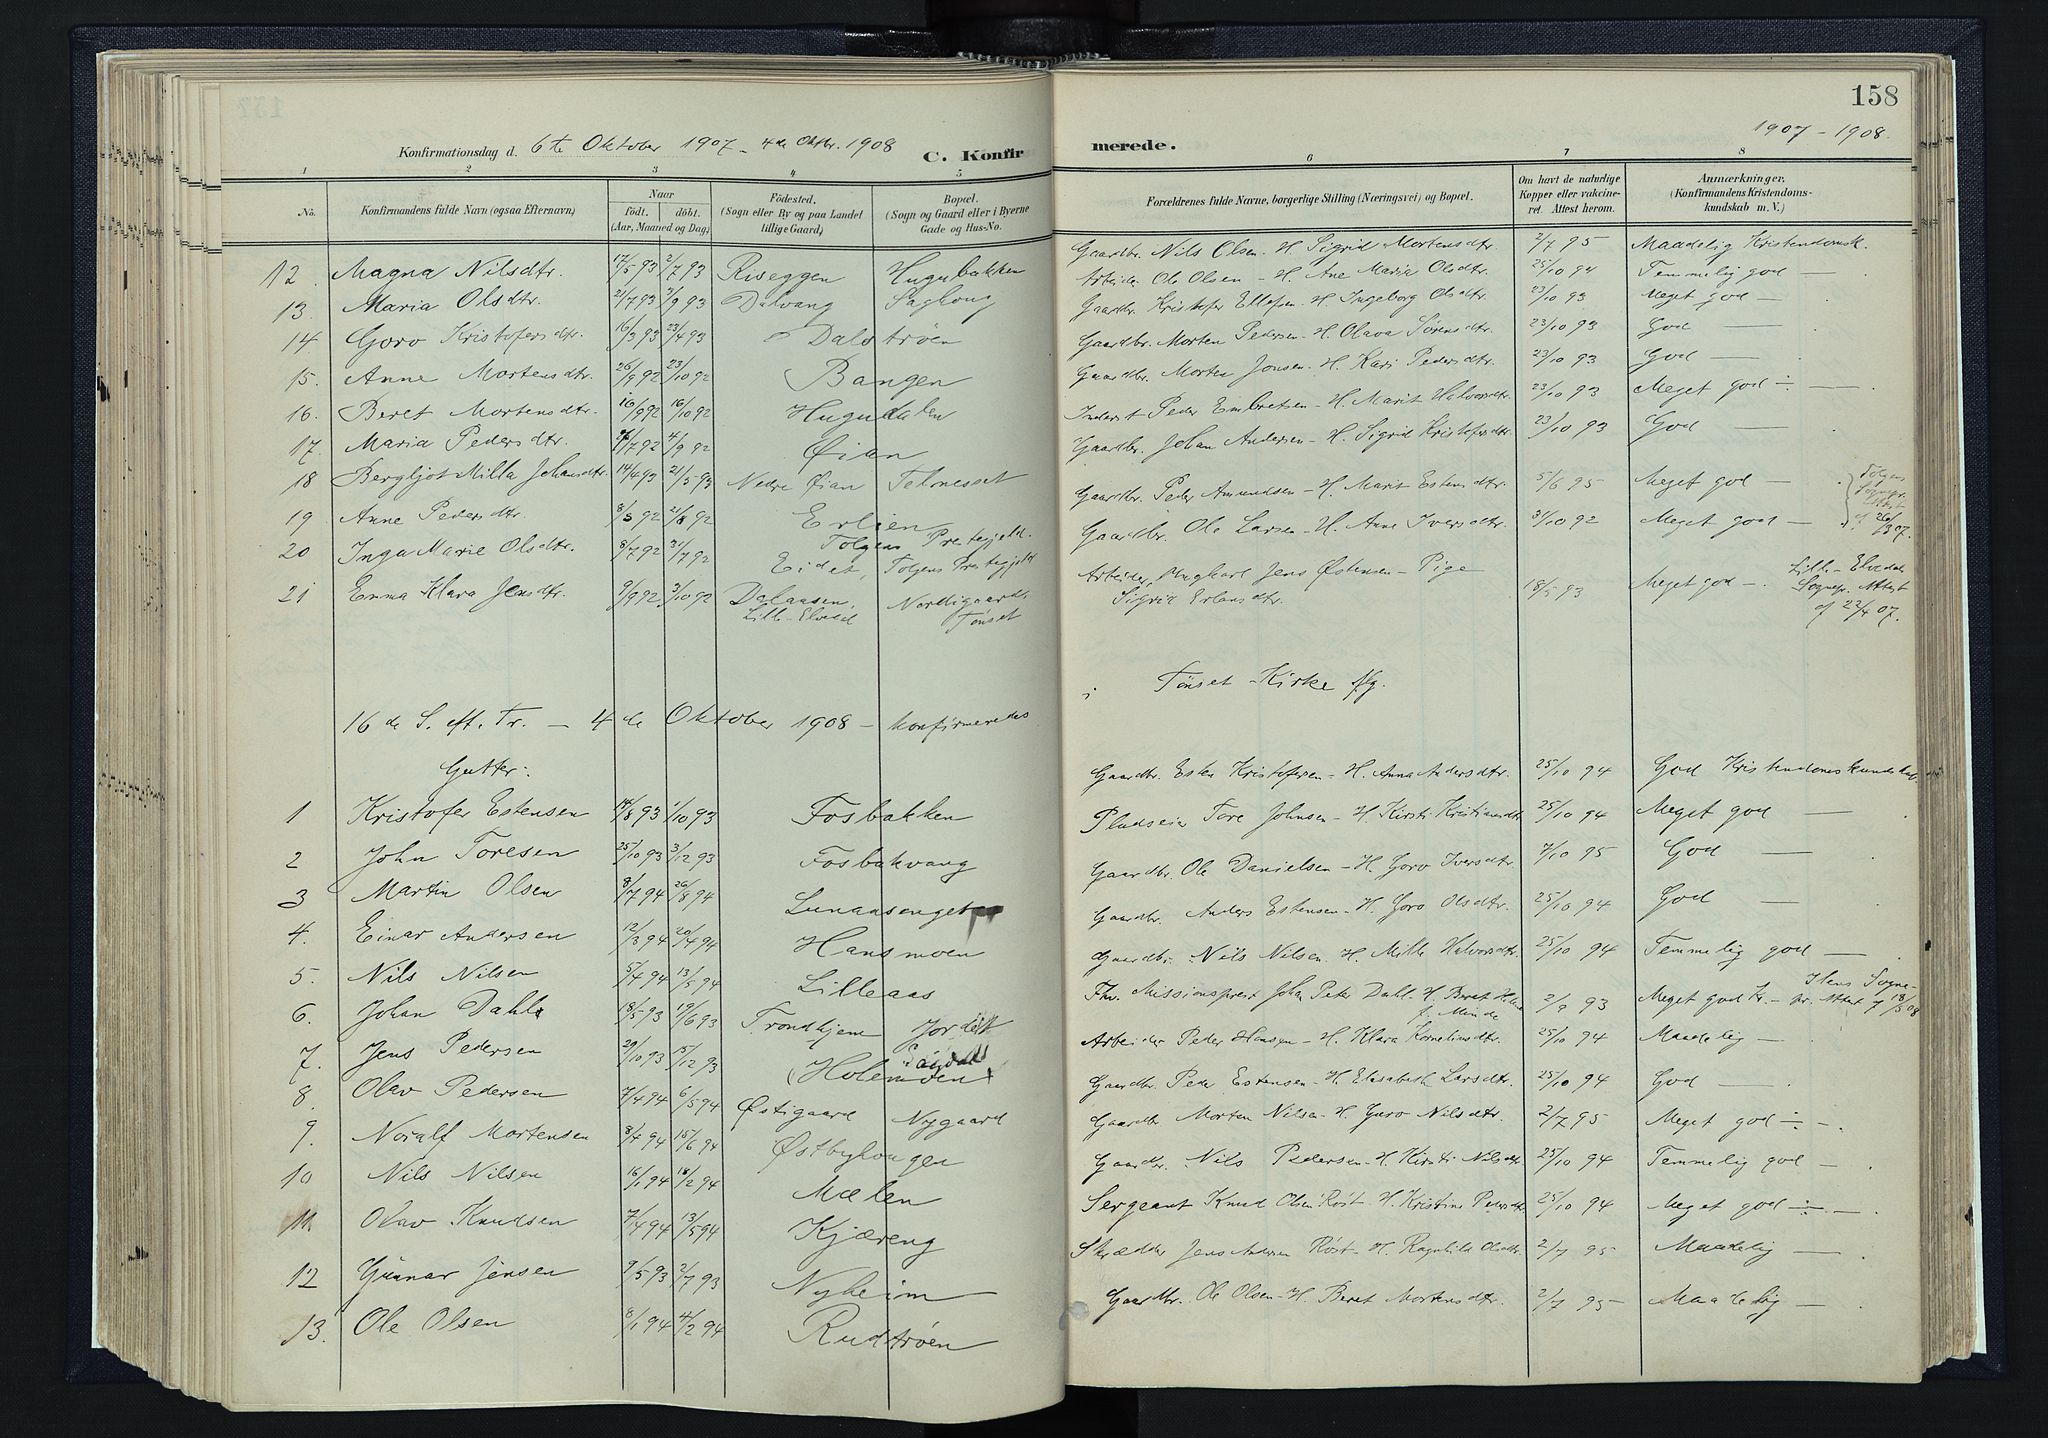 158
1907 - 1908.
Konfirmationsdag d. 6te Oktober 1907 - 4de Oktbr. 1908 C. Konfirmerede.
1 2 3 4 5 6 7 8
No. Konfirmandens fulde Navn (ogsaa Efternavn) Naar født. døbt. (Aar, Maaned og Dag) Fødested. (Sogn eller By og paa Landet tillige Gaard) Bopæl. (Sogn og Gaard eller i Byerne Gade og Hus-No. Forældrenes fulde Navne, borgerlige Stilling (Næringsvei) og Bopæl. Om havt de naturlige Kopper eller vakcineret. Attest herom. Anmærkninger. (Konfirmandens Kristendomskundskab m. V.)
12. Magna Nilsdtr. 17/5 93 2/7 93 Riseggen Hugubakken Gaardbr. Nils Olsen - H. Sigrid Mortensdtr. 2/7 95 Maadelig Kristendomsk.
13. Maria Olsdtr. 21/7 93 3/9 93 Dalvang Saghoug Arbeider Ole Olsen - H. Ane Maria Olsdtr. 25/10 94 Temmelig god
14 Goro Kristofersdtr. 16/3 93 23/4 93 Dalstrøen Gaardbr. Kristofer Ellefsen - H. Ingeborg Olsdtr. 23/10 93 Meget god —
15. Anne Mortensdtr. 26/9 92 23/10 92 Bangen Gaardbr. Morten Pedersen - H. Olava Sørensdtr. 23/10 93 God —
16. Beret Mortensdtr. 16/9 92 16/10 92 Hugudalen Gaardbr. Morten Jonsen - H. Kari Pedersdtr. 23/10 93 God —
17. Maria Pedersdtr. /7 92 4/9 92 Øian Inderst Peder Embretsen - H. Marit Halvorsdtr. 23/10 93 Meget god ÷ —
18 Bergljot Milla Johansdtr. 14/4 93 21/5 93 Nedre Øian Telnesset Gaardbr. Johan Andersen - H. Sigrid Kristofersdtr. 23/10 93 God —
19. Anne Pedersdtr. 8/5 92 21/8 92 Erlien Tolgens Prestegjeld. Gaardbr. Peder Amundsen - H. Marit Estensdtr. 5/6 95 Meget god — Tolgens Sognepr. Attest
20 Inga Marie Olsdtr. 8/7 92 31/7 92 Eidet, Tolgens Prestegjeld Gaardbr. Ole Larsen - H. Anne Iversdtr. 31/10 92 Meget god — af 26/3 07.
21 Emma Klara Jensdtr. 9/9 92 3/10 92 Dalaasen, Lille-Elvedal Nordigaard, Tønset Arbeider, Ungkarl Jens Østensen - Pige Sigrid Erlansdtr. 18/5 93 Meget god —. Lille-Elvedal Sognepr. Attest af 22/4 07.
16de S. eft. Tr. - 4de Oktober 1908 - konfirmeredes i Tønset Kirke flg.
Gutter:
1 Kristofer Estensen 14/8 93 1/10 93 Fosbakken Gaardbr. Esten Kristofersen - H. Anna Andersdtr. 25/10 94 God Kristendomskundskab.
2 John Toresen 25/10 93 3/12 93 Fosbakvang Pladseier Tore Johnsen - H. Kirsti Kristiansdtr. 25/10 94 Meget god —
3 Martin Olsen 8/7 94 26/8 94 Lunaasenget Gaardbr. Ole Danielsen - H. Goro Iversdtr. 7/10 95 God —
4. Einar Andersen 12/3 94 20/4 94 Hansmoen Gaardbr. Anders Estensen - H. Goro Olsdtr. 25/10 94 God —
5. Nils Nilsen 5/4 94 13/5 94 Lilleaas Gaardbr. Nils Nilsen - H. Mille Halvorsdtr. 25/10 94 Temmelig god —
6. Johan Dahl 18/5 93 19/6 93 Trondhjem Fhv. Missionsprest Johan Peter Dahl - H. Beret 2/9 93 Meget god Kr. - Ilens Sognepr. Attest af 18/5 08
7. Jens Pedersen 29/10 93 15/12 93 Holemoen Arbeider Peder Hansen - H. Klara Korneliusdtr. 25/10 94 Maadelig —
8. Olav Pedersen 7/4 94 6/5 94 Østigaard Nygaard Gaardbr. Peder Estensen - H. Elisabeth Larsdtr. 25/10 94 God —
9. Noralf Mortensen 8/4 94 15/6 94 Østbyhougen Gaardbr. Morten Nilsen - H. Guro Nilsdtr. 2/7 95 Meget god ÷ -
10 Nils Nilsen 16/1 94 18/2 94 Mælen Gaardbr. Nils Pedersen - H. Kirsti Nilsdtr. 25/10 94 Temmelig god —
11. Olav Knudsen 7/4 94 13/5 94 Kjæreng Sergeant Knud Olsen Røst - H. Kristine Pedersdtr. 25/10 94 Meget god ÷ —
12 Gunnar Jensen 9/5 93 2/7 93 Nyheim Skrædder Jens Andersen Røst - H. Ragnhild Olsdtr. 2/7 95 Maadelig —
13. Ole Olsen 8/1 94 4/2 94 Rudstrøen Gaardbr. Ole Olsen - H. Beret Mortensdtr. 2/7 95 Maadelig —